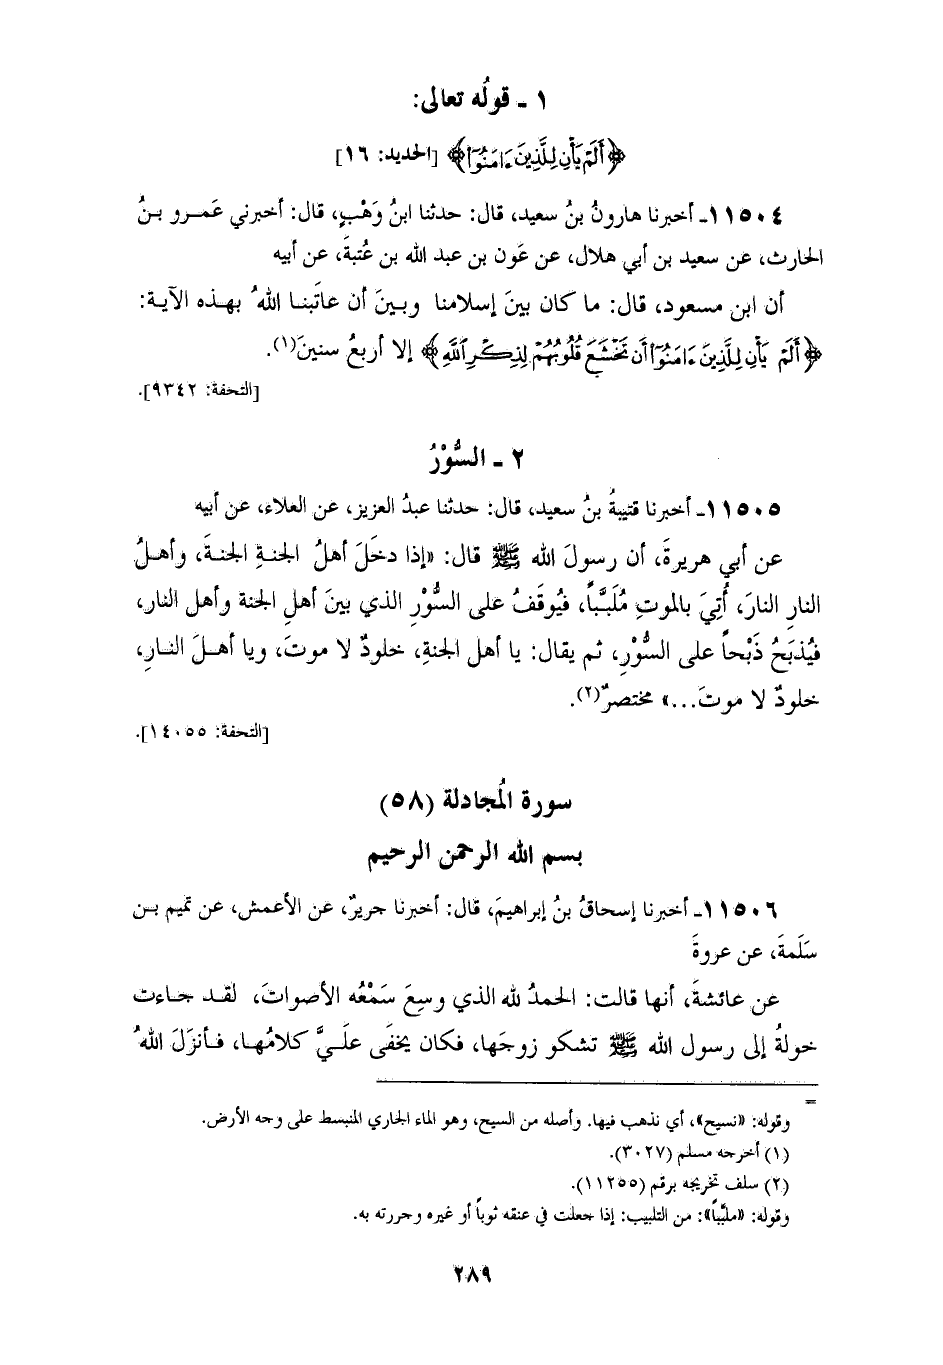 ١ ـ قولُه تعالى:
﴿أَلَمْ يَأْنِ لِلَّذِينَ ءَامَنُوٓا﴾ [الحديد: ١٦]
١١٥٠٤ـ أخبرنا هارونُ بنُ سعيد، قال: حدثنا ابنُ وَهْبٍ، قال: أخبرني عَمرو بنُ
الحارث، عن سعيد بن أبي هلال، عن عَون بن عبد الله بن عُتبةَ، عن أبيه
أن ابن مسعود، قال: ما كان بينَ إسلامنا وبينَ أن عاتَبنا اللهُ بهذه الآية:
﴿أَلَمْ يَأْنِ لِلَّذِينَ ءَامَنُوٓا أَن تَخْشَعَ قُلُوبُهُمْ لِذِكْرِ ٱللَّهِ﴾ إلا أربعُ سنينَ(١).
[التحفة: ٩٣٤٢].
٢ ـ السُّوْرُ
١١٥٠٥ـ أخبرنا قتيبةُ بنُ سعيد، قال: حدثنا عبدُ العزيز، عن العلاء، عن أبيه
عن أبي هريرةَ، أن رسولَ الله ﷺ قال: «إذا دخَلَ أهلُ الجنةِ الجنةَ، وأهلُ
النارِ النارَ، أُتِيَ بالموتِ مُلَبَّباً، فيُوقَفُ على السُّوْرِ الذي بينَ أهلِ الجنة وأهل النار،
فيُذبَحُ ذَبْحاً على السُّوْرِ، ثم يقال: يا أهل الجنةِ، خلودٌ لا موتَ، ويا أهلَ النارِ،
خلودٌ لا موتَ...» مختصرٌ(٢).
[التحفة: ١٤٠٥٥].
سورة المُجادلة (٥٨)
بسم الله الرحمن الرحيم
١١٥٠٦ـ أخبرنا إسحاقُ بنُ إبراهيمَ، قال: أخبرنا جريرٌ، عن الأعمش، عن تميم بن
سَلَمةَ، عن عروةَ
عن عائشةَ، أنها قالت: الحمدُ لله الذي وسِعَ سَمْعُه الأصواتَ، لقد جاءت
خولةُ إلى رسول الله ﷺ تشكو زوجَها، فكان يخفَى علَيَّ كلامُها، فأنزَلَ اللهُ
=
وقوله: «نسيح»، أي نذهب فيها. وأصله من السيح، وهو الماء الجاري المنبسط على وجه الأرض.
(١) أخرجه مسلم (٣٠٢٧).
(٢) سلف تخريجه برقم (١١٢٥٥).
وقوله: «ملبَّباً»: من التلبيب: إذا جعلت في عنقه ثوباً أو غيره وجررته به.
٢٨٩